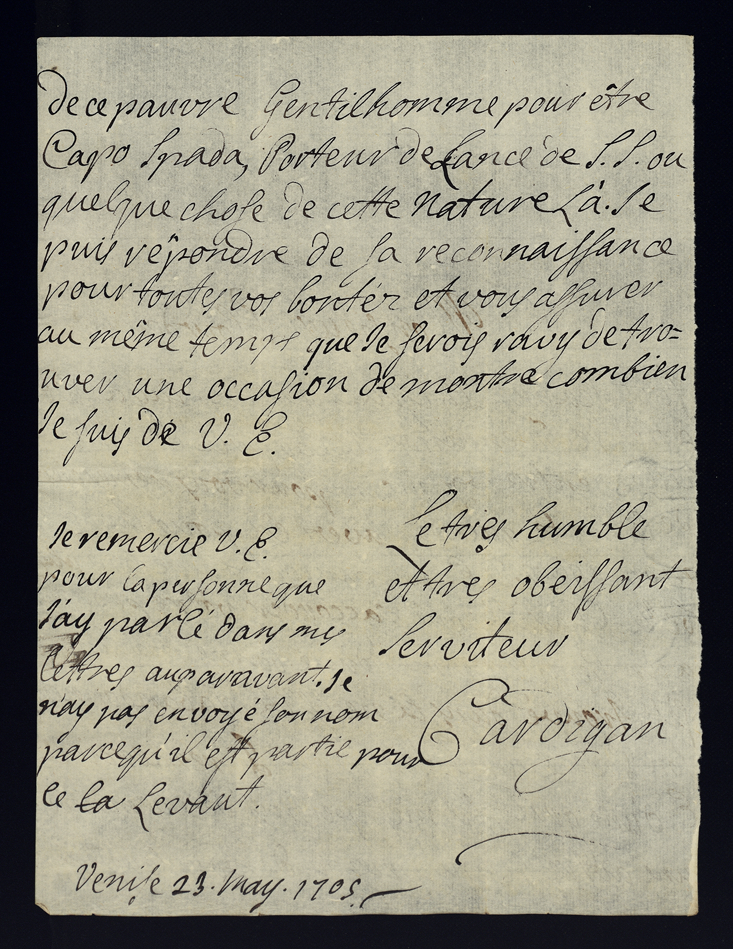 de ce pauvre Gentilhomme pour être
Capo Spada, Porteur de Lance de S.S. ou
quelque chose de cette nature Là. Je
puis répondre de sa reconnaissance
pour toutes vos bontéz et vous assurer
au même temps que Je serois ravy de tro=
uver une occasion de montre combien
Je suis de V. E.
Le tres humble
et tres obeissant
Serviteur
Cardigan
Je remercie V. E.
pour la personne que
J'ay parlé dans mes
lettres auparavant. Je
n'ay pas envoyé son nom
parcequ'il est partie pour
le la Levant.
Venise 23. May. 1705.